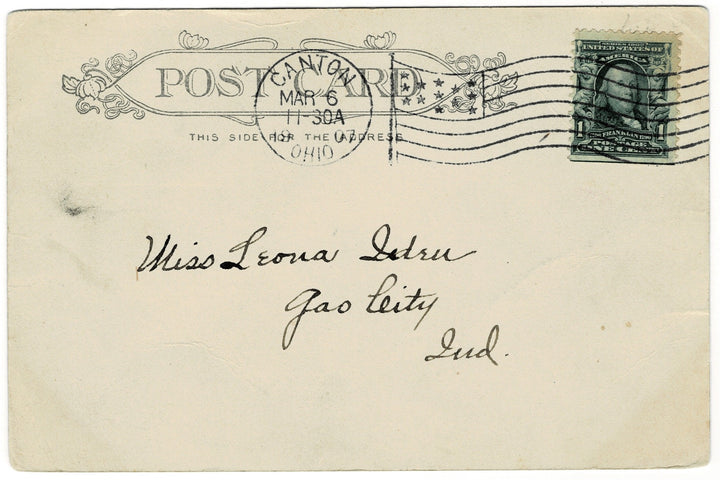 POST CARD
THIS SIDE FOR THE ADDRESS
CANTON
MAR 6
11-30A
07
OHIO
UNITED STATES OF
AMERICA
1 FRANKLIN 1
POSTAGE
ONE CENT
Miss Leona Iden
Gas City
Ind.